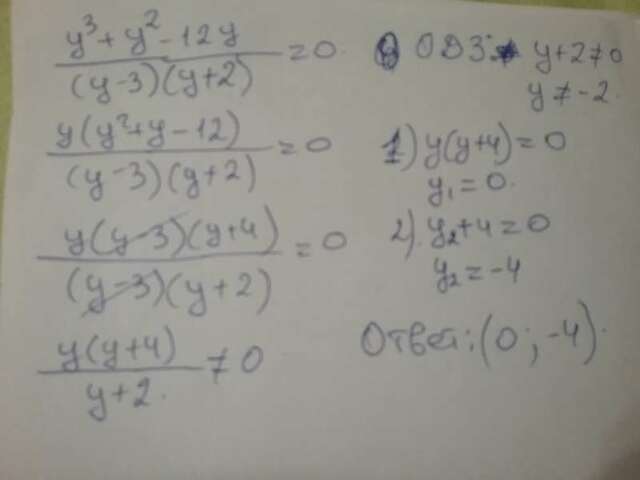 y³+y²-12y
/(y-3)(y+2) =0
y(y²+y-12)
/(y-3)(y+2) =0
y(y-3)(y+4)
/(y-3)(y+2) =0
y(y+4)
/y+2. ≠0
ОДЗ: y+2≠0
y≠-2.
1) y(y+4)=0
y₁=0.
2). y₂+4=0
y₂=-4
Ответ:(0;-4).